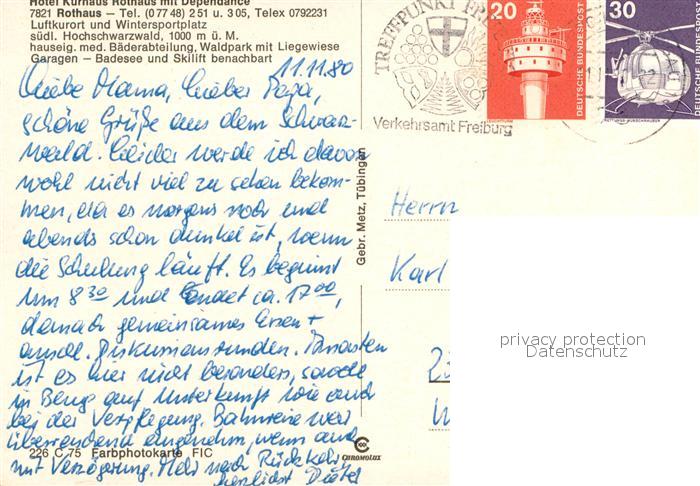 Hotel Kurhaus Rothaus mit Dependance
7821 Rothaus — Tel. (0 77 48) 2 51 u. 3 05, Telex 0792231
Luftkurort und Wintersportplatz
südl. Hochschwarzwald, 1000 m ü. M.
hauseig. med. Bäderabteilung, Waldpark mit Liegewiese
Garagen — Badesee und Skilift benachbart
11.11.80
Liebe Mama, lieber Papa,
schöne Grüße aus dem Schwarz-
wald. Leider werde ich davon
wohl nicht viel zu sehen bekom-
men, da es morgens noch und
abends schon dunkel ist, wenn
die Schulung läuft. Es beginnt
um 8 30 und endet ca. 17 00,
danach gemeinsames Essen +
anschl. Diskussionsrunden. Ansonsten
ist es hier nicht besonders, sowohl
in Bezug auf Unterkunft wie auch
bei der Verpflegung. Bahnreise war
überraschend angenehm, wenn auch
mit Verzögerung. Mehr nach Rückkehr
herzlichst Dieter
226 C 75 Farbphotokarte FIC
CHROMOLUX
Gebr. Metz, Tübingen
TREFFPUNKT
Verkehrsamt Freiburg
20
DEUTSCHE BUNDESPOST
LEUCHTTURM
30
DEUTSCHE BUNDESPOST
RETTUNGS-HUBSCHRAUBER
Herrn
Karl
privacy protection
Datenschutz